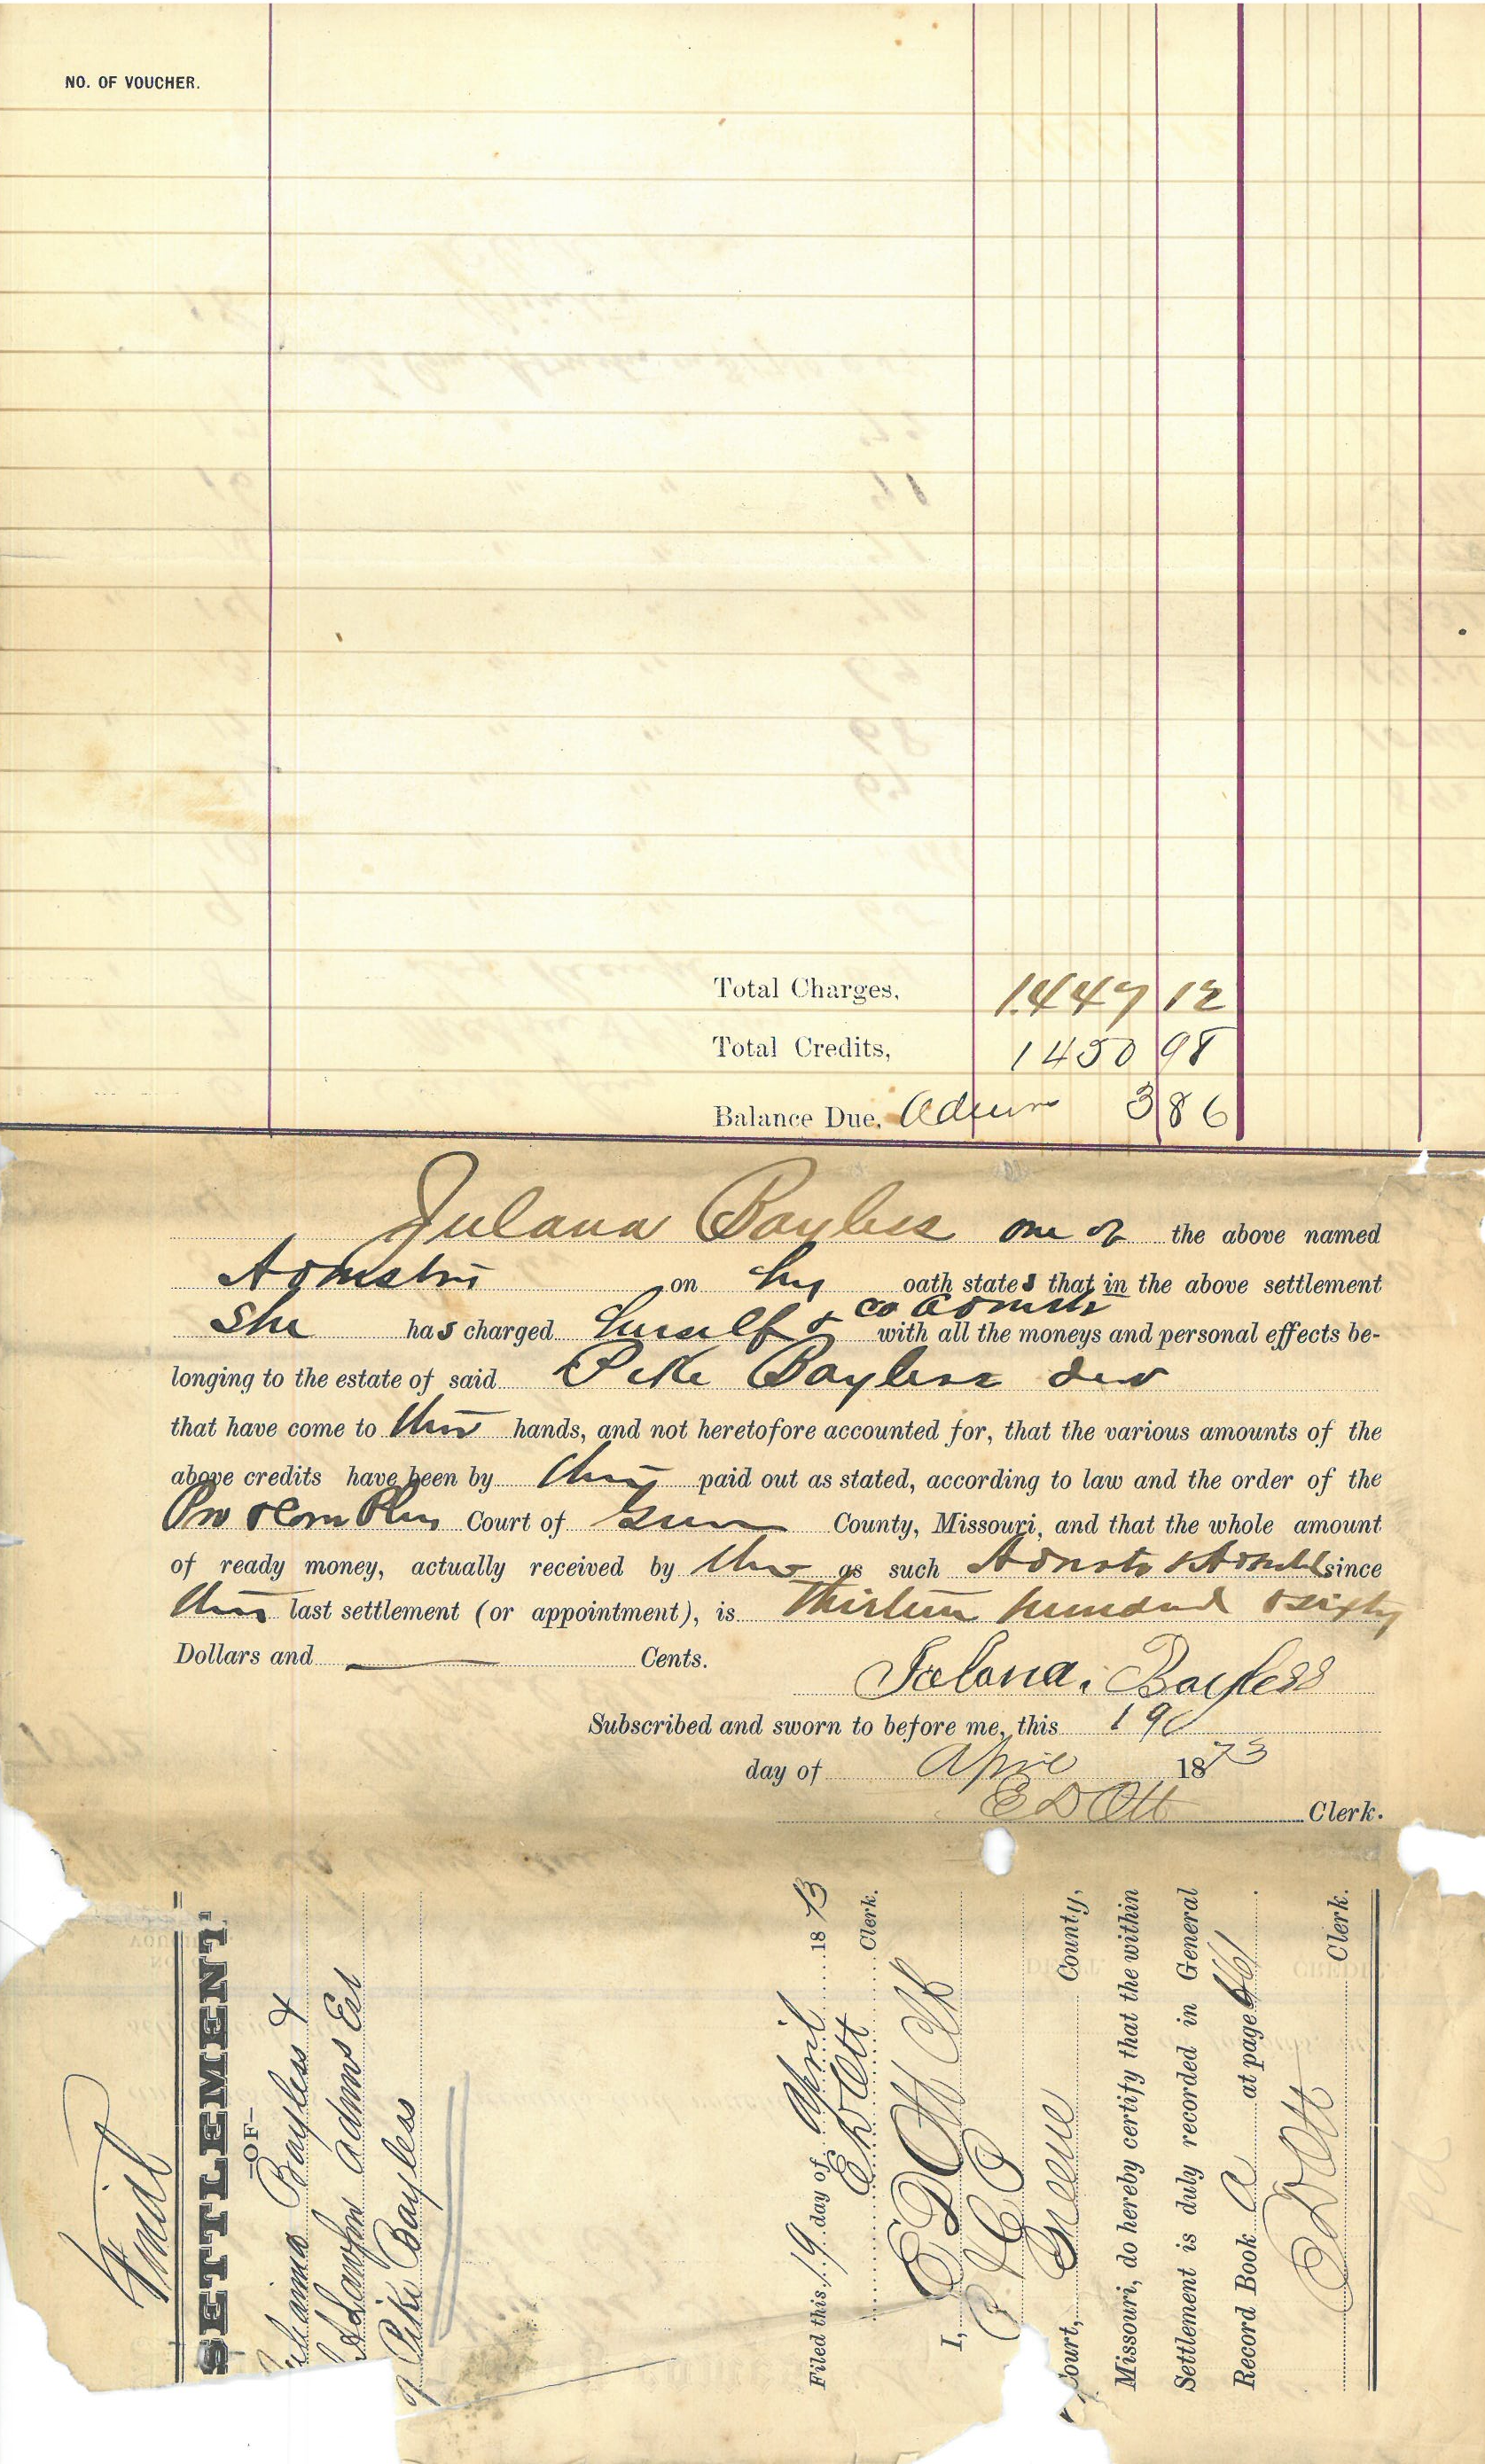 NO. OF VOUCHER.
Total Charges, 1447 12
Total Credits, 1450 98
Balance Due, Admr 3 86
Julana Bayless one of the above named
Admstrs on hr oath states that in the above settlement
She has charged herself & co Admstr with all the moneys and personal effects be-
longing to the estate of said Pike Bayless decd
that have come to their hands, and not heretofore accounted for, that the various amounts of the
above credits have been by them paid out as stated, according to law and the order of the
Pro & Com Pleas Court of Greene County, Missouri, and that the whole amount
of ready money, actually received by them as such since
their last settlement (or appointment), is Thirteen hundred & sixty
Dollars and — Cents.
Bayless
Subscribed and sworn to before me, this 19
day of April 1873
E D Ott Clerk.
Final
SETTLEMENT
—OF—
Bayless &
Admrs Est
of Pike Bayless
Filed this 19 day of April 1873
E D Ott Clerk.
I, E D Ott Clk
Court, Greene County,
Missouri, do hereby certify that the within
Settlement is duly recorded in General
Record Book A at page 461.
E D Ott Clerk.